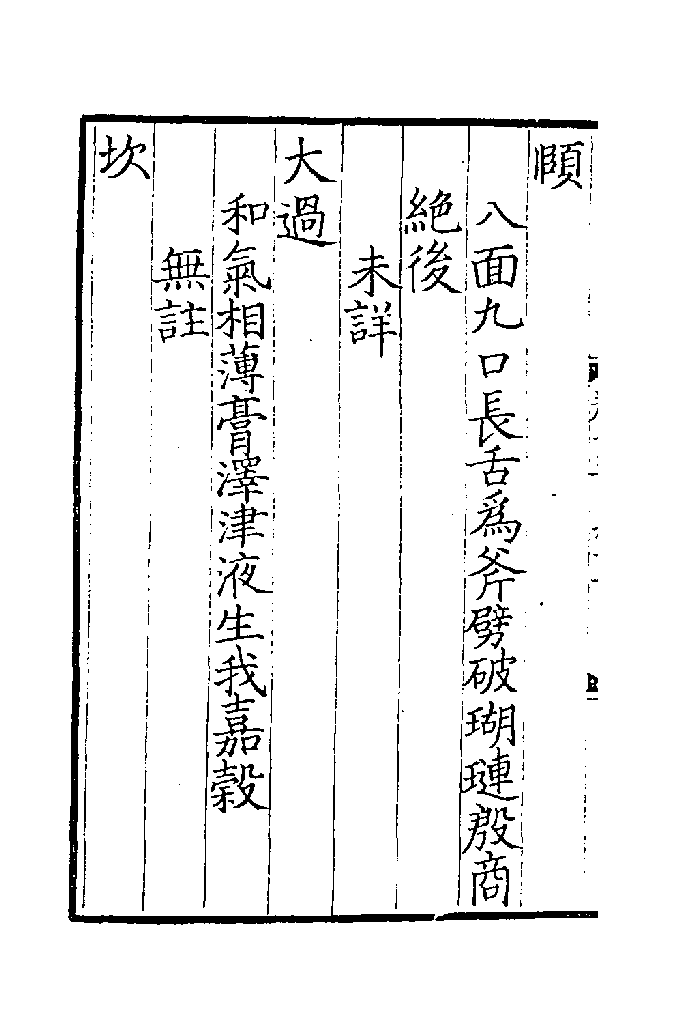 頤
八面九口長舌爲斧劈破瑚璉殷商
絶後
未詳
大過
和氣相薄膏澤津液生我嘉榖
無註
坎